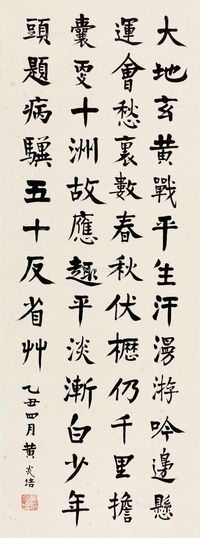 大地玄黄戰平生汗漫游吟邊懸
運會愁裏數春秋伏櫪仍千里擔
囊雯十洲故應趣平淡漸白少年
頭題病驥五十反省艸 乙丑四月 黄炎培